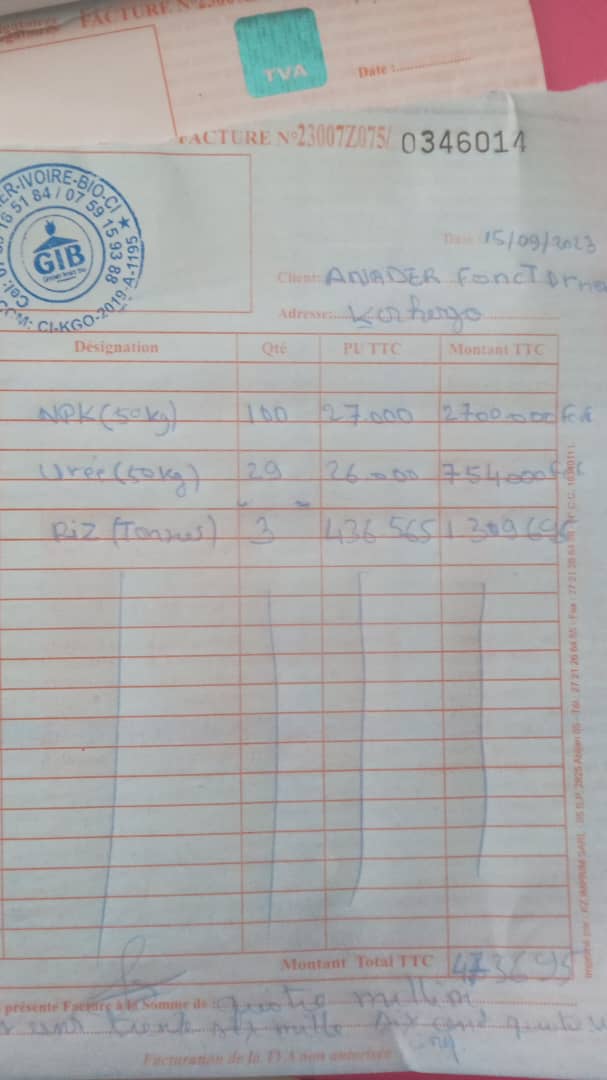 FACTURE N°
TVA
Date :
FACTURE N°23007Z075/ 0346014
ER-IVOIRE-BIO-CI ★
16 51 84 / 07 59 15 93 88
GIB
Cel:
CCM: CI-KGO-2019-A-1195
Date : 15/09/2023
Client: ANADER
Adresse: Korhogo
Désignation Qté PU TTC Montant TTC
NPK (50kg) 100 27.000 2700.000 fcfa
Urée (50kg) 29 26.000 754000
Riz (Tonnes) 3 436 565 1 309 695
Montant Total TTC
présente Facture à la Somme de : quatre million
cent trente six mille six cent
Facturation de la TVA non autorisée